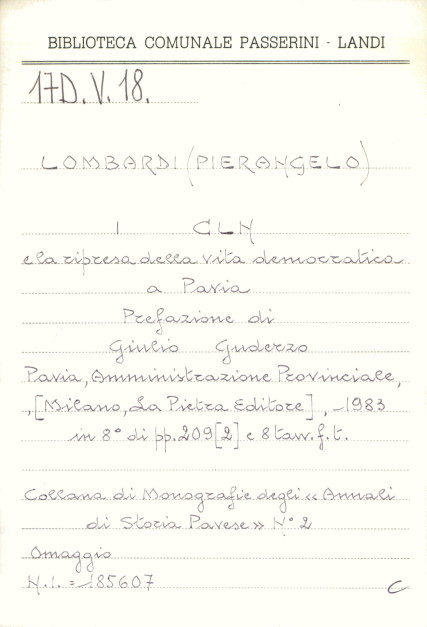 BIBLIOTECA COMUNALE PASSERINI - LANDI
17D.V.18.
LOMBARDI (PIERANGELO)
I CLN
e la ripresa della vita democratica
a Pavia
Prefazione di
Giulio Guderzo
Pavia, Amministrazione Provinciale,
, [Milano, La Pietra Editore], 1983
in 8° di pp. 209 [2] e 8 tavv. f. t.
Collana di Monografie degli «Annali
di Storia Pavese» N° 2
Omaggio
N.I. = 185607
C